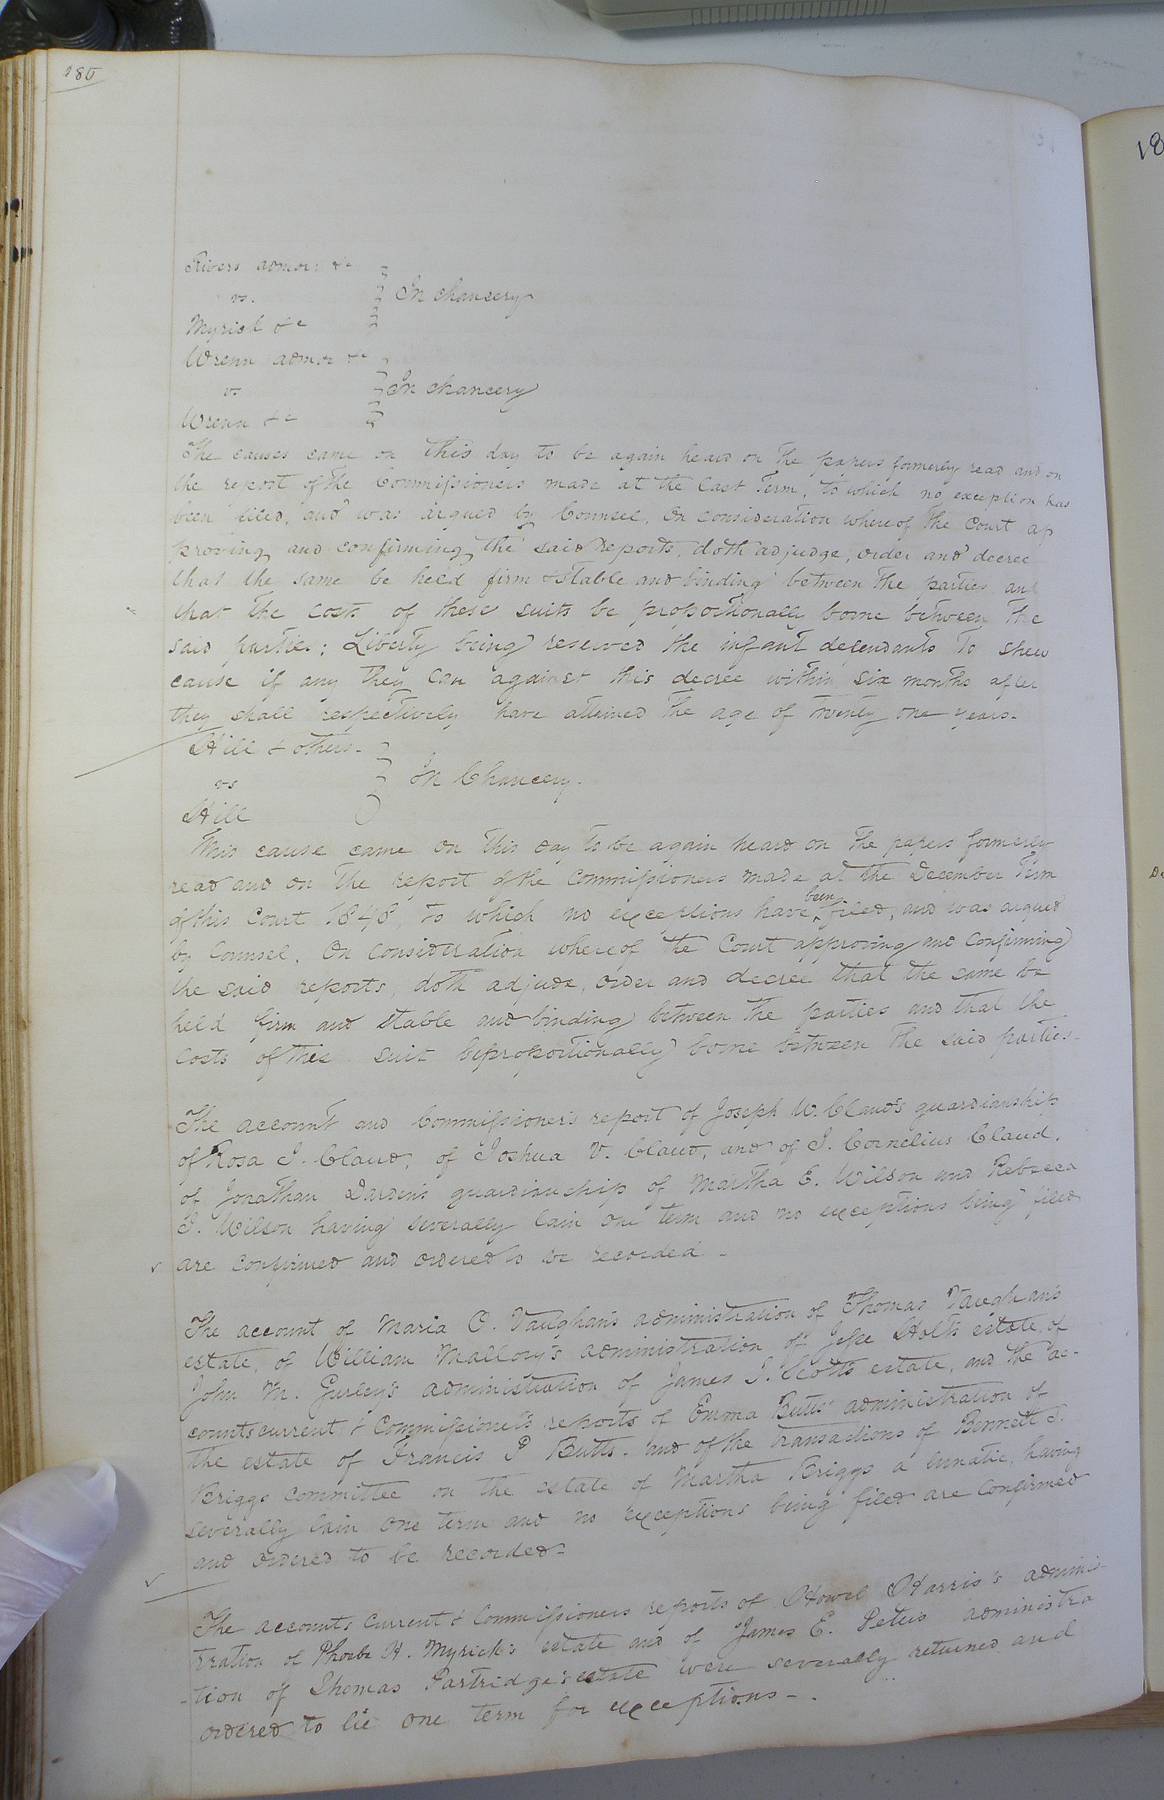 180
18
Rivers admor &c
vs.
In Chancery
Myrick &c
Wrenn admor &c
vs
In Chancery
Wrenn &c
The causes came on this day to be again heard on the papers formerly read and on
the report of the Commissioners made at the last Term, to which no exception has
been filed, and was argued by Counsel, On consideration whereof the Court ap
proving and confirming the said reports, doth adjudge, order and decree
that the same be held firm & stable and binding between the parties and
that the costs of these suits be proportionally borne between the
said parties; Liberty being reserved the infant defendants to shew
cause if any they can against this decree within six months after
they shall respectively have attained the age of twenty one years.
Hill & others.
vs
In Chancery.
Hill
This cause came on this day to be again heard on the papers formerly
read and on the report of the Commissioners made at the December Term
of this Court 1848, to which no exceptions have been filed, and was argued
by Counsel, On consideration whereof the Court approving and confirming
the said reports, doth adjudge, order and decree that the same be
held firm and stable and binding between the parties and that the
Costs of this suit be proportionally borne between the said parties.
The account and Commissioner's report of Joseph W. Claud's guardianship
of Rosa J. Claud, of Joshua V. Claud, and of J. Cornelius Claud,
of Jonathan Darden's guardianship of Martha E. Wilson and Rebecca
J. Wilson having severally lain one term and no exceptions being filed
are confirmed and ordered to be recorded -
The account of Maria O. Vaughan's administration of Thomas Vaughan's
estate, of William Mallory's administration of Jesse Holt's estate, of
John M. Gurley's administration of James S. Scott's estate, and the ac-
counts current & Commissioner's reports of Emma Butts' administration of
the estate of Francis P Butts - and of the transactions of Bennett S.
Briggs committee on the estate of Martha Briggs a lunatic, having
severally lain one term and no exceptions being filed are confirmed
and ordered to be recorded -
The accounts current & Commissioners reports of Howel Harris's adminis-
tration of Phoebe H. Myrick's estate and of James E. Petus administra
-tion of Thomas Partridge's estate were severally returned and
ordered to lie one term for exceptions - .